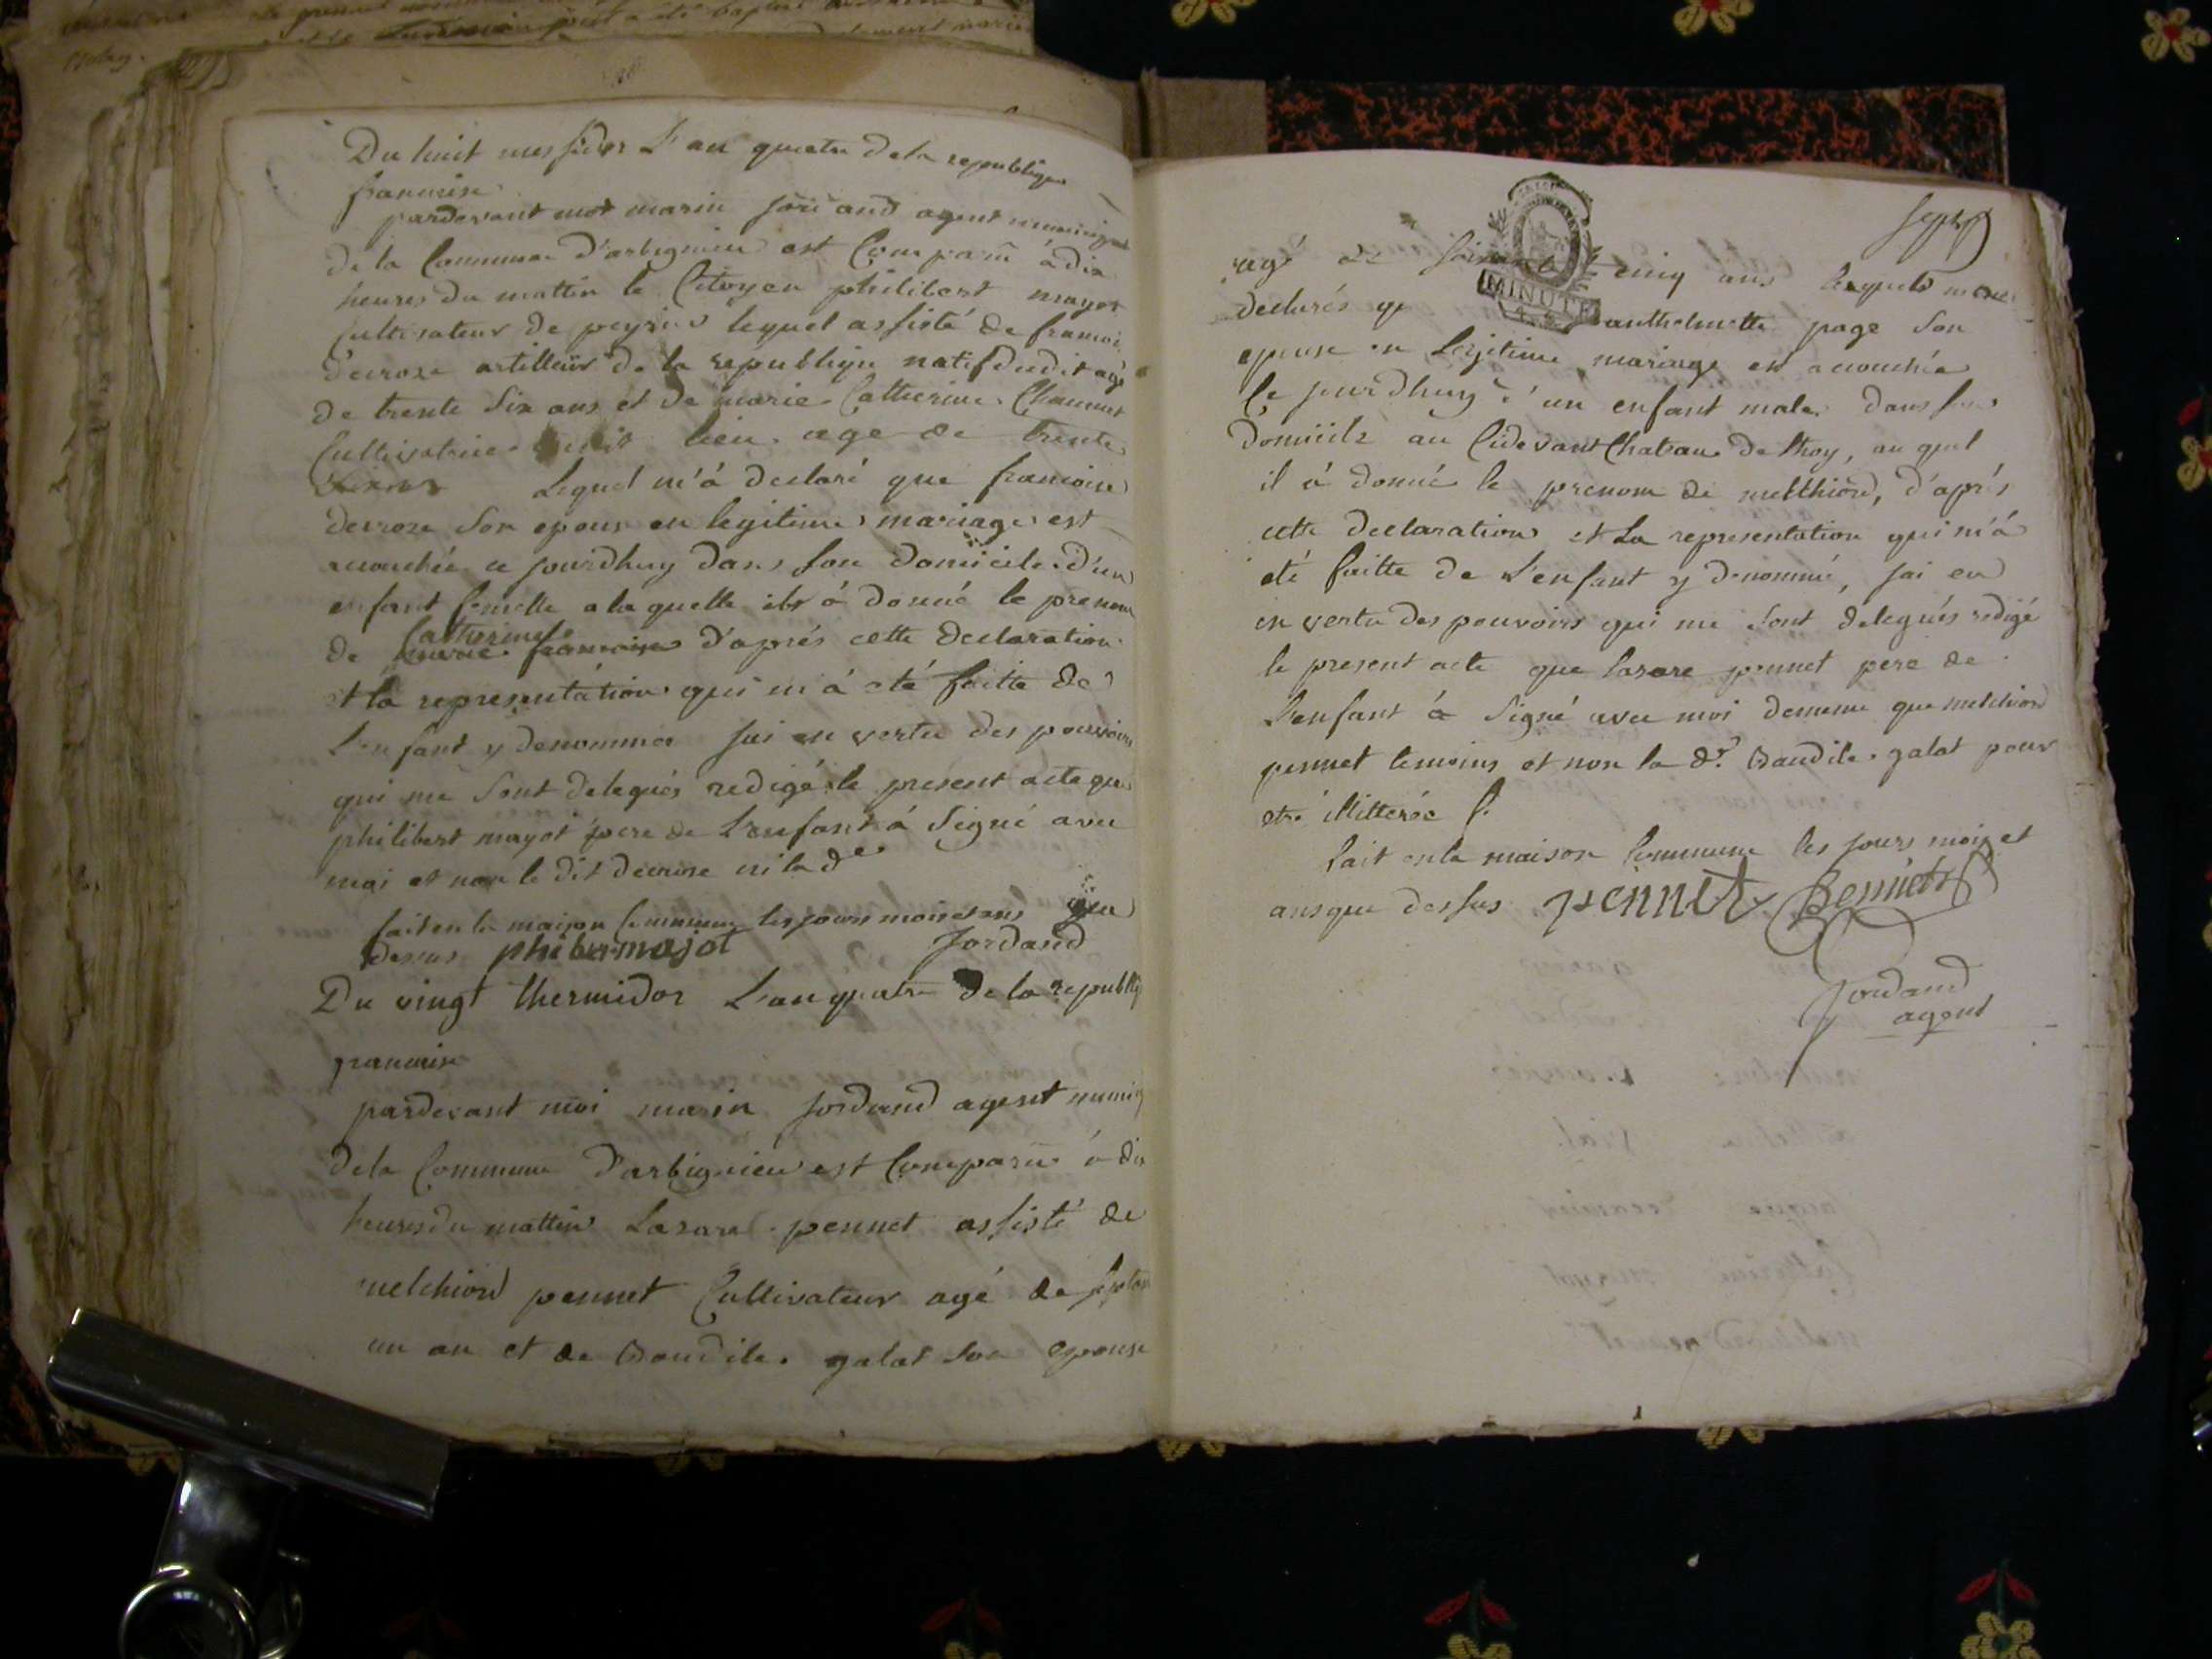 Du huit messidor L'an quatre de la republique
francaise
pardevant moi marin Jordand agent municipal
de la Commune D'arbignieu est Comparu à dix
heures du mattin le Citoyen philibert mayot
Cultivateur de peyrieu lequel assisté de francois
decroze artilleur de la republique natif dudit agé
de trente six ans et de marie Catherine Chaumet
Cultivatrice dudit lieu age de trente
Lequel m'à declaré que francoise
decroze son epouse en legitime mariage est
accouchée ce jourdhuy dans son domicile d'un
enfant femelle a laquelle il à donné le prenom
Catherine
de marie francoise d'après cette declaration
et la representation qui m'à eté faitte de
L'enfant y denommée jai en vertu des pouvoirs
qui me sont delegués redigé le present acte que
philibert mayot pere de L'enfant à signé avec
moi et non le dit decroze ni la de
fait en la maison Commune les jours mois et ans que
dessus phibermajot Jordand
Du vingt thermidor L'an quatre de la republiq
francaise
pardevant moi marin Jordand agent munici
de la Commune D'arbignieu est Comparu à dix
heures du mattin Lazare pennet assisté de
melchiord pennet Cultivateur agé de septan
un an et de Baudile galat son epouse
sept
agé de soixante cinq ans lesquels m'ont
declarés q anthelmette page son
epouse en Legitime mariage est accouchée
Ce jourdhuy d'un enfant male dans son
domicile au Cidevant Chateau de thoy, auquel
il à donné le prenom de melchiord, d'après
cette declaration et La representation qui m'à
eté faitte de L'enfant y denommé, jai en
en vertu des pouvoirs qui me sont delegués redigé
le present acte que lazare pennet pere de
L'enfant à signé avec moi de meme que melchiord
pennet temoins et non la de Baudile galat pour
etre illitterée
fait en la maison Commune les jours mois et
ans que dessus pennet Pennet
Jordand
agent